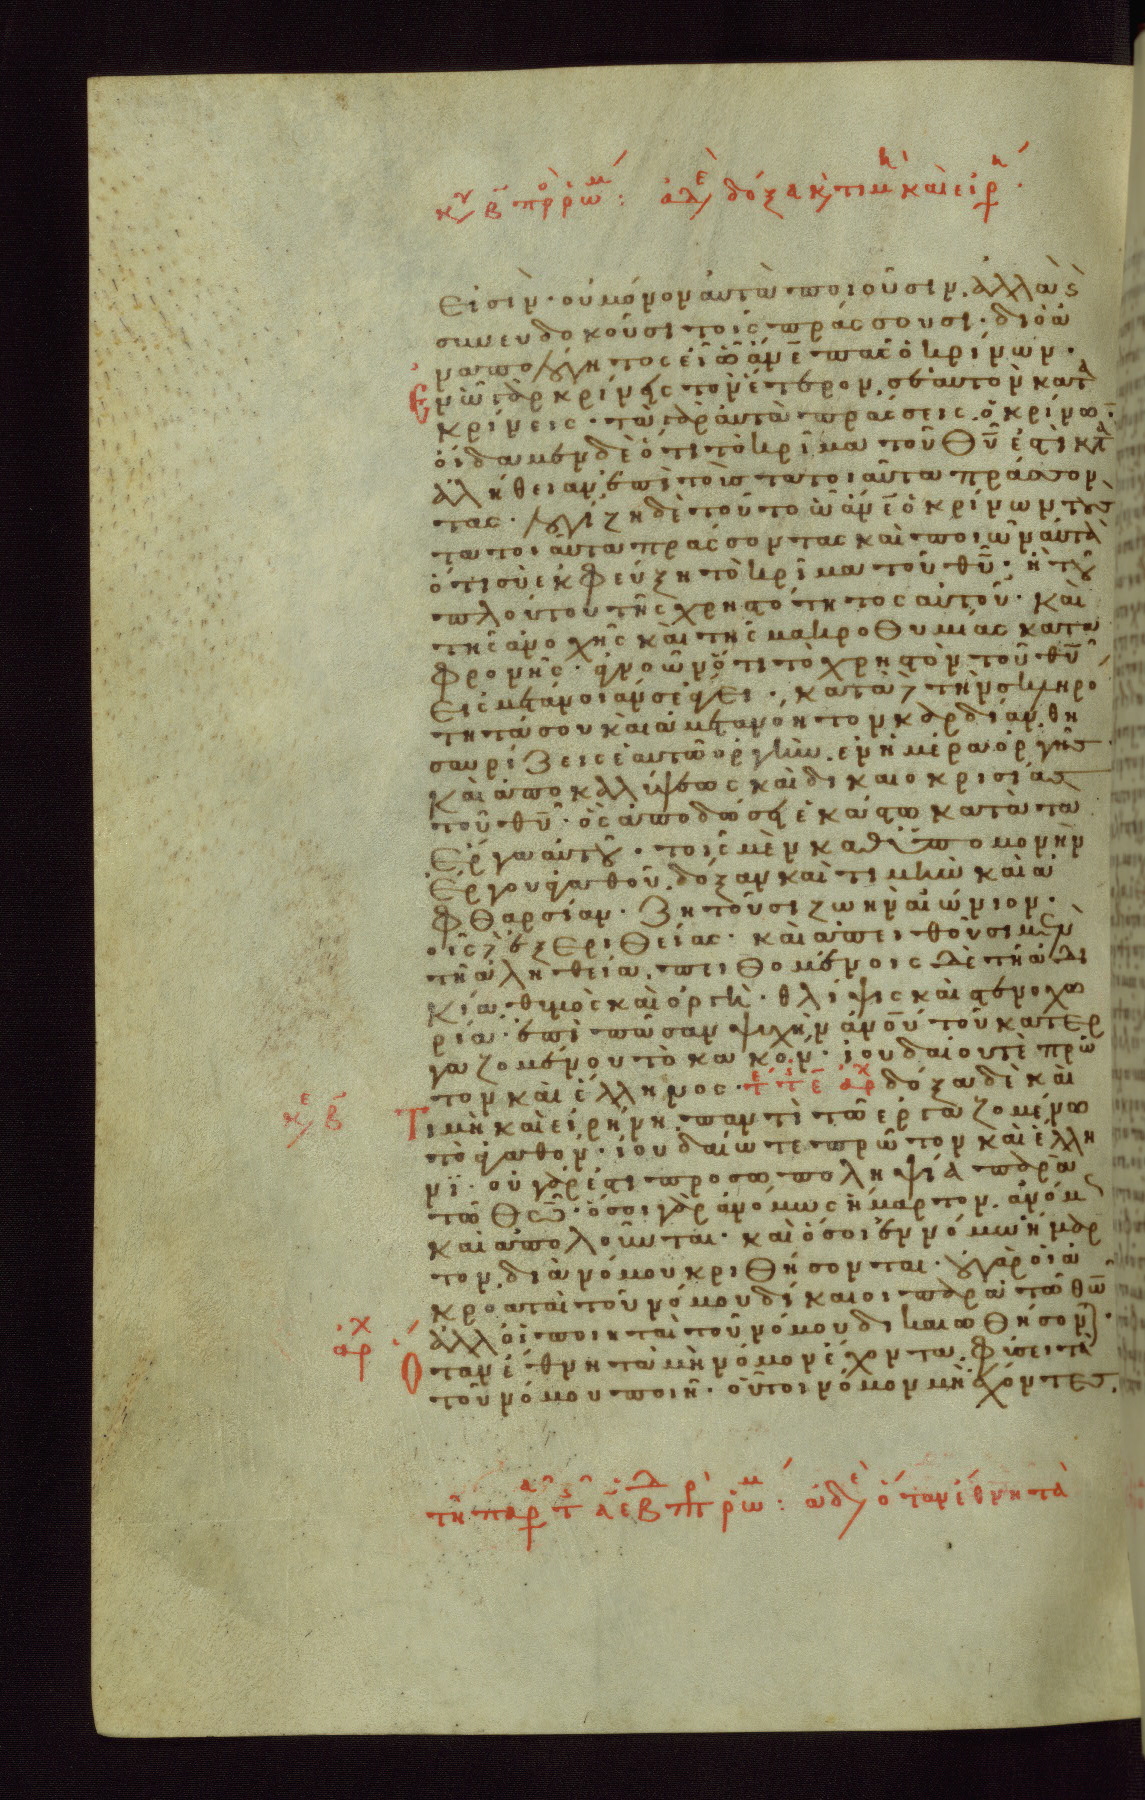 κυ β πρ ρωμ: ἀδελ δόξα κ τιμὴ καὶ εἰρήν.
εἰσίν· οὐ μόνον αὐτὰ ποιοῦσιν, ἀλλὰ ϗ
συνευδοκοῦσι τοῖς πράσσουσι· διὸ ἀ
ναπολόγητος εἶ ὦ ἄνε πᾶς ὁ κρίνων·
Ἐν ὧ γὰρ κρίνεις τὸν ἕτερον, σεαυτὸν κατα
κρίνεις· τὰ γὰρ αὐτὰ πράσσεις ὁ κρίνων·
οἴδαμεν δὲ ὅτι τὸ κρῖμα τοῦ θυ ἐστὶ κατὰ
ἀλήθειαν ἐπὶ τοὺς τὰ τοιαῦτα πράσσον
τας· λογίζη δὲ τοῦτο ὦ ἄνε ὁ κρίνων τοὺς
τὰ τοιαῦτα πράσσοντας καὶ ποιῶν αὐτὰ
ὅτι σὺ ἐκφεύξη τὸ κρῖμα τοῦ θυ· ἢ τοῦ
πλούτου τῆς χρηστότητος αὐτοῦ· καὶ
τῆς ἀνοχῆς καὶ τῆς μακροθυμίας κατα
φρονῆς· ἀγνοῶν ὅτι τὸ χρηστὸν τοῦ θυ
εἰς μετάνοιάν σε ἄγει· κατὰ δὲ τὴν σκληρό
τητά σου καὶ ἀμετανόητον καρδίαν, θη
σαυρίζεις ἑαυτῶ ὀργὴν, ἐν ἡμέρα ὀργῆς
καὶ ἀποκαλύψεως καὶ δικαιοκρισίας
τοῦ θυ· ὃς ἀποδώσει ἑκάστω κατὰ τὰ
ἔργα αὐτοῦ· τοῖς μὲν καθ' ὑπομονὴν
ἔργου ἀγαθοῦ, δόξαν καὶ τιμὴν καὶ ἀ
φθαρσίαν· ζητοῦσι ζωὴν αἰώνιον·
τοῖς δὲ ἐξ ἐριθείας· καὶ ἀπειθοῦσι μὲν
τῆ ἀληθεία, πειθομένοις δὲ τῆ ἀδι
κία, θυμὸς καὶ ὀργή· θλίψις καὶ στενοχω
ρία· ἐπὶ πᾶσαν ψυχὴν ἀνου τοῦ κατερ
γαζομένου τὸ κακόν· ἰουδαίου τὲ πρῶ
τον καὶ ἕλληνος· τε τς ε αρχ δόξα δὲ καὶ
κε β τιμὴ καὶ εἰρήνη, παντὶ τῶ ἐργαζομένω
τὸ ἀγαθόν· ἰουδαίω τε πρῶτον καὶ ἕλλη
νϊ· οὐ γάρ ἐστι προσωποληψία παρὰ
τῶ θω· ὅσοι γὰρ ἀνόμως ἥμαρτον, ἀνόμως
καὶ ἀπολοῦνται· καὶ ὅσοι ἐν νόμω ἥμαρ
τον, διὰ νόμου κριθήσονται· οὐ γὰρ οἱ ἀ
κροαταὶ τοῦ νόμου δίκαιοι παρὰ τῶ θω
ἀρχ ἀλλ' οἱ ποιηταὶ τοῦ νόμου δικαιωθήσον·
Ὅταν ἔθνη τὰ μὴ νόμον ἔχοντα, φύσει τὰ
τοῦ νόμου ποιῆ· οὗτοι νόμον μὴ ἔχοντες,
τῆ παρ τς α ε β πρ ρωμ: ἀδε ὅταν ἔθνη τὰ